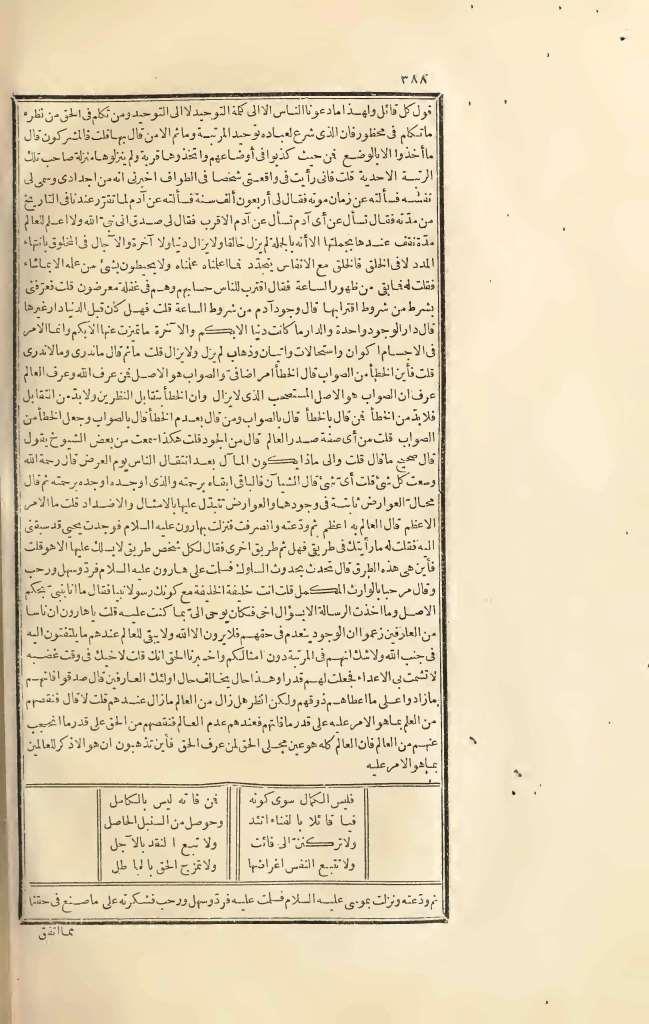 ٣٨٨
قول كل قائل ولهذا ما دعونا الناس الا الى كلمة التوحيد لا الى التوحيد ومن تكلم فى الحق من نظره
ما تكلم فى محظور فان الذى شرع لعباده توحيد المرتبة وما ثم الا من قال بها قلت فالمشركون قال
ما أخذوا الا بالوضع فمن حيث كذبوا فى أوضاعهم واتخذوها قربة ولم ينزلوها منزلة صاحب تلك
الرتبة الاحدية قلت فانى رأيت فى واقعتى شخصا فى الطواف اخبرنى انه من اجدادى وسمى لى
نفسه فسألته عن زمان موته فقال لى أربعون ألف سنة فسألته عن آدم لما تقرر عندنا فى التاريخ
من مدته فقال تسأل عن أى آدم تسأل عن آدم الاقرب فقال لى صدق انى نبى الله ولا اعلم للعالم
مدة نقف عندها بجملتها الا أنه بالجملة لم يزل خالقا ولا يزال دنيا ولا آخرة والا آجال فى المخلوق بانتهاء
المدد لا فى الخلق فالخلق مع الانفاس يتجدد فما اعلمناه علمناه ولا يحيطون بشئ من علمه الا بما شاء
فقلت له فما بقى من ظهور الساعة فقال اقترب للناس حسابهم وهم فى غفلة معرضون قلت فعرفنى
بشرط من شروط اقترابها قال وجود آدم من شروط الساعة قلت فهل كان قبل الدنيا دار غيرها
قال دار الوجود واحدة والدار ما كانت دنيا الا بكم والآخرة ما تميزت عنها الا بكم وانما الامر
فى الاجسام اكوان واستحالات واتيان وذهاب لم يزل ولا يزال قلت ما ثم قال ما ندرى وما لا ندرى
قلت فأين الخطأ من الصواب قال الخطأ امر اضافى والصواب هو الاصل فمن عرف الله وعرف العالم
عرف ان الصواب هو الاصل المستصحب الذى لا يزال وان الخطأ بتقابل النظرين ولا بد من التقابل
فلا بد من الخطأ فمن قال بالخطأ قال بالصواب ومن قال بعدم الخطأ قال بالصواب وجعل الخطأ من
الصواب قلت من أى صفة صدر العالم قال من الجود قلت هكذا سمعت من بعض الشيوخ يقول
قال صحيح ما قال قلت والى ماذا يكون المآل بعد انتقال الناس يوم العرض قال رحمة الله
وسعت كل شئ قلت أى شئ قال الشيئآن فالباقى ابقاه برحمته والذى اوجده اوجده برحمته ثم قال
محال العوارض ثابتة فى وجودها والعوارض تتبدل عليها بالامثال والاضداد قلت ما الامر
الاعظم قال العالم به اعظم ثم ودعته وانصرفت فنزلت بهارون عليه السلام فوجدت يحيى قد سبقنى
اليه فقلت له ما رأيتك فى طريقى فهل ثم طريق اخرى فقال لكل شخص طريق لا يسلك عليها الا هو قلت
فأين هى هذه الطرق قال تحدث بحدوث السلوك فسلمت على هارون عليه السلام فرد وسهل ورحب
وقال مرحبا بالوارث المكمل قلت انت خليفة الخليفة مع كونك رسولا نبيا فقال ما انا بنبى بحكم
الاصل وما اخذت الرسالة الا بسؤال اخى فكان يوحى الى بما كنت عليه قلت يا هارون ان ناسا
من العارفين زعموا ان الوجود ينعدم فى حقهم فلا يرون الا الله ولا يبقى للعالم عندهم ما يلتفتون اليه
فى جنب الله ولا شك انهم فى المرتبة دون امثالكم واخبرنا الحق انك قلت لاخيك فى وقت غضبه
لا تشمت بى الاعداء فجعلت لهم قدرا وهذا حال يخالف حال اولئك العارفين قال صدقوا فانهم
ما زادوا على ما اعطاهم ذوقهم ولكن انظر هل زال من العالم ما زال عندهم قلت لا قال فنقصهم
من العلم بما هو الامر عليه على قدر ما فاتهم فعندهم عدم العالم فنقصهم من الحق على قدر ما انحجب
عنهم من العالم فان العالم كله هو عين مجلى الحق لمن عرف الحق فأين تذهبون ان هو الا ذكر للعالمين
بما هو الامر عليه
فليس الكمال سوى كونه فمن فاته ليس بالكامل
فيا قائلا بالفناء اتئد وحوصل من السنبل الحاصل
ولا تركنن الى فائت ولا تبع النقد بالآجل
ولا تتبع النفس اغراضها ولا تمزج الحق بالباطل
ثم ودعته ونزلت بموسى عليه السلام فسلمت عليه فرد وسهل ورحب فشكرته على ما صنع فى حقنا
مما اتفق